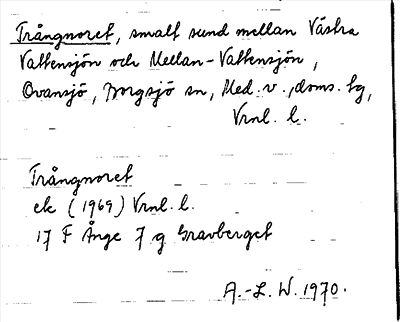 Trångnoret, smalt sund mellan Västra
Vattensjön och Mellan-Vattensjön,
Ovansjö, Borgsjö sn, Med. v., doms. tg,
Vrnl. l.
Trångnoret
ek (1969) Vrnl. l.
17 F Ånge 7 g Gravberget
A.-L. W. 1970.